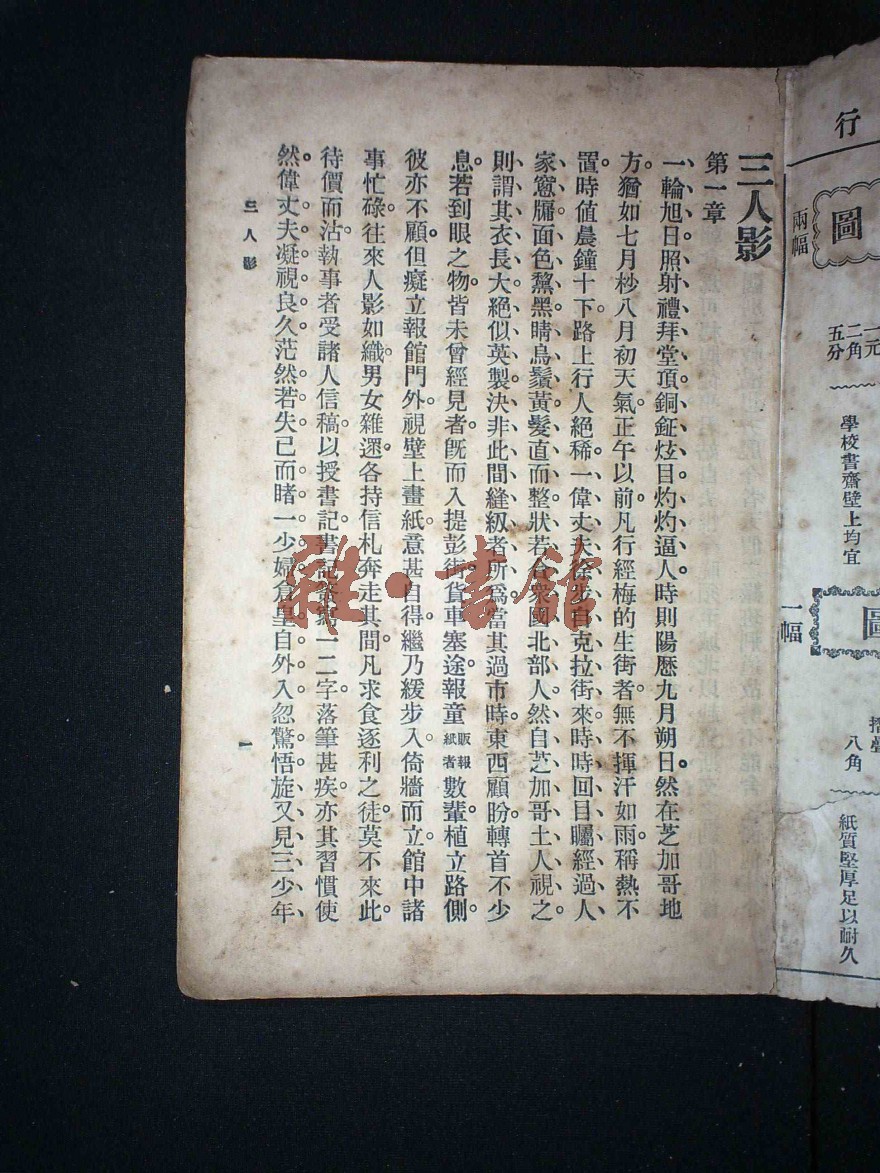 三人影
第一章
一輪旭日照射禮拜堂頂銅鉦炫目灼灼逼人時則陽歷九月朔日然在芝加哥地
方猶如七月杪八月初天氣正午以前凡行經梅的生街者無不揮汗如雨稱熱不
置時值晨鐘十下路上行人絕稀一偉丈夫徐步自克拉街來時時回目矚經過人
家窻牖面色黧黑睛烏鬚黃髮直而整狀若合衆國北部人然自芝加哥土人視之
則謂其衣長大絕似英製決非此間縫紉者所爲當其過市時東西顧盼轉首不少
息若到眼之物皆未曾經見者旣而入提彭街貨車塞途報童販報紙者數輩植立路側
彼亦不顧但癡立報館門外視壁上畫紙意甚自得繼乃緩步入倚牆而立館中諸
事忙碌往來人影如織男女雜遝各持信札奔走其間凡求食逐利之徒莫不來此
待價而沽執事者受諸人信稿以授書記書記
一二字落筆甚疾亦其習慣使
然偉丈夫凝視良久茫然若失已而睹一少婦倉皇自外入忽驚悟旋又見三少年
三人影
一
行
圖
兩幅
一元
二角
五分
學校書齋壁上均宜
圖
一幅
摺疊
八角
紙質堅厚足以耐久
雜·書館